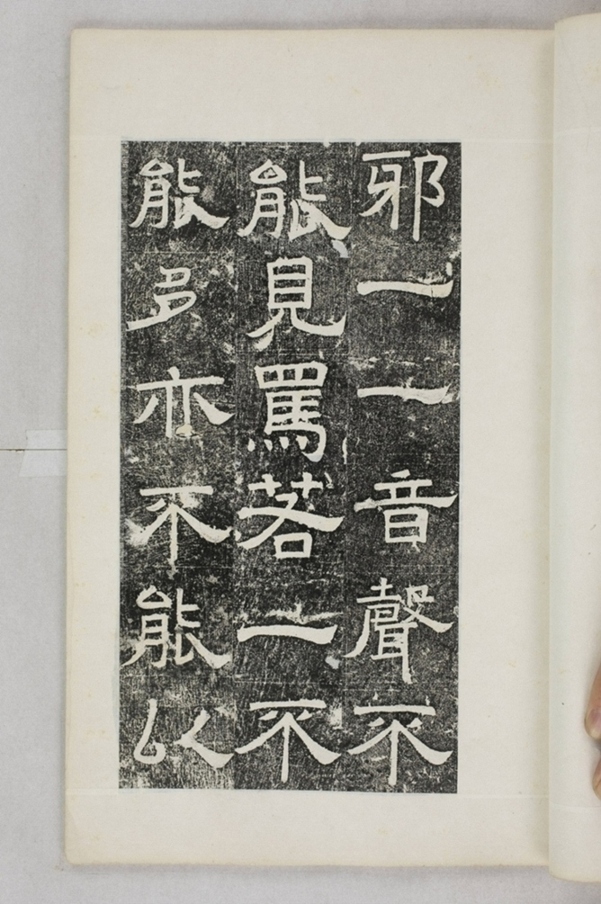 邪一一音聲不
能見罵若一不
能多亦不能以